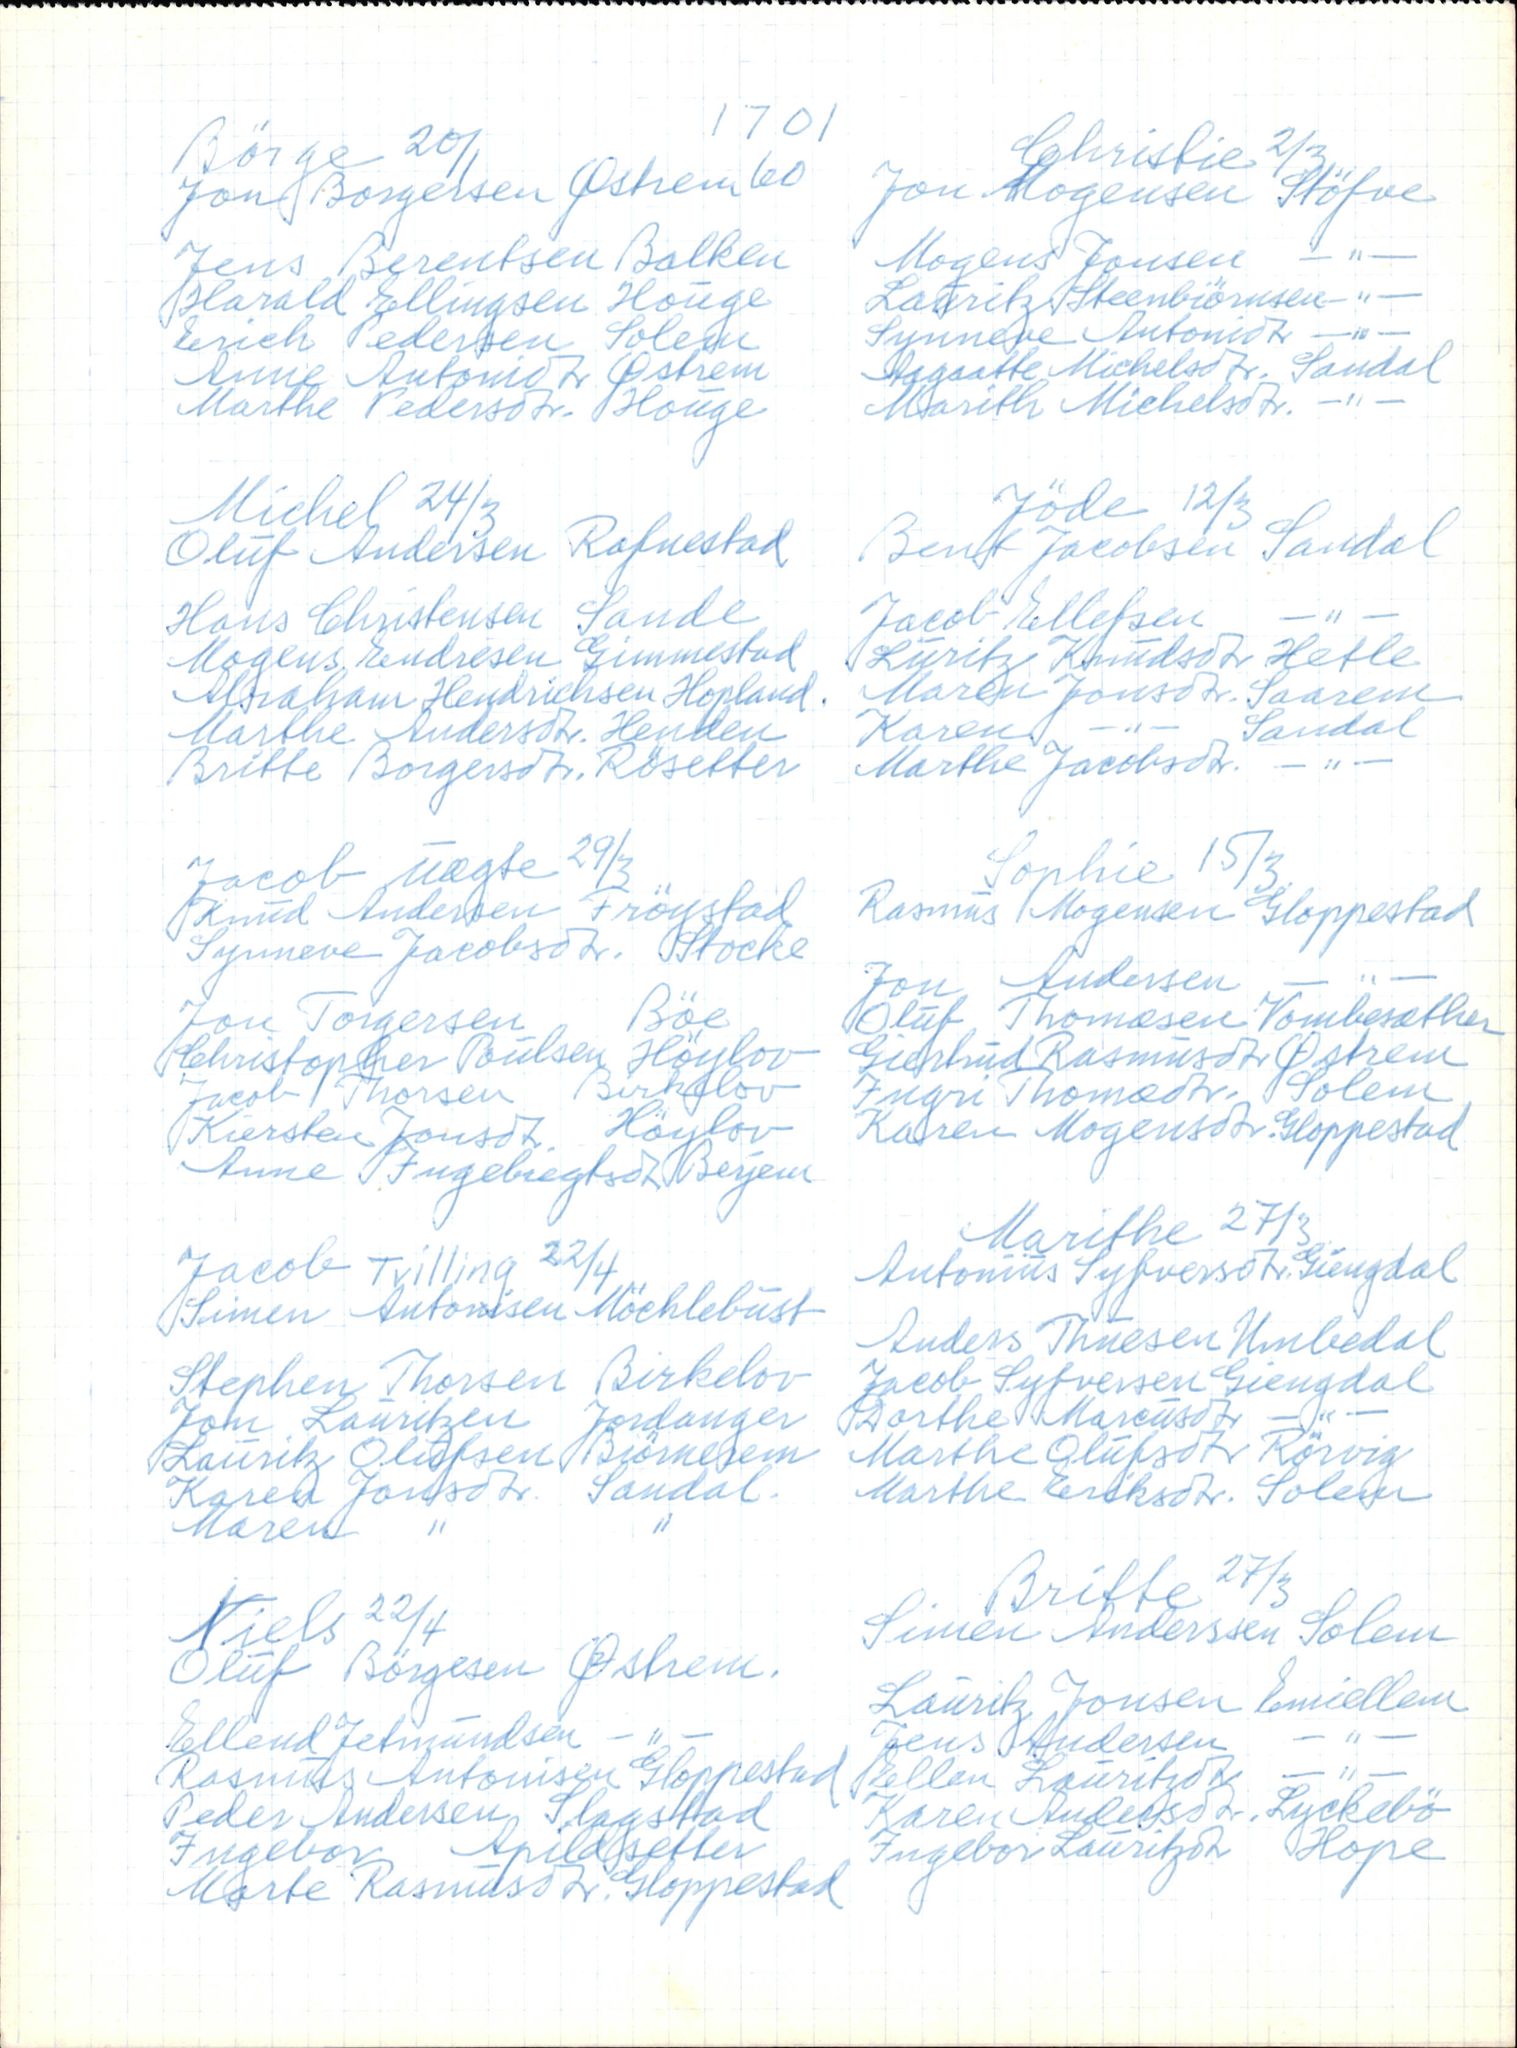 1701
Börge 20/1
Jon Borgersen Østrem 60
Jens Berentsen Balken
Harald Ellingsen Houge
Erich Pedersen Solem
Anne Antonidtr Østrem
Marthe Pedersdtr. Houge
Michel 24/3
Oluf Andersen Rafnestad
Hans Christensen Sande
Mogens Endresen Gimmestad
Abraham Hendrichsen Hopland.
Marthe Andersdtr. Henden
Britte Borgersdtr. Rösetter
Jacob uægte 29/3
Knud Andersen Fröystad
Synneve Jacobsdtr. Stocke
Jon Torgersen Böe
Christopher Poulsen Höylov
Jacob Thorsen Birkelov
Kiersten Jonsdtr. Höylov
Anne Ingebriegtsdtr Berjem
Jacob Tvilling 22/4
Simen Antonisen Möchlebust
Stephen Thorsen Birkelov
Jon Lauritzen Jordanger
Lauritz Olufsen Biörnerem
Karen Jonsdtr. Sandal.
Maren " "
Niels 22/4
Oluf Börgesen Østrem.
Ellend Jetmundsen -"-
Rasmus Antonisen Gloppestad
Peder Andersen Slagstad
Ingebor Apildsetter
Marte Rasmusdtr. Gloppestad
Christie 2/3
Jon Mogensen Stöfve
Mogens Jonsen -"-
Lauritz Steenbiörnsen -"-
Synneve Antonidtr -"-
Aagaatte Michelsdtr. Sandal
Marith Michelsdtr. -"-
Jöde 12/3
Bent Jacobsen Sandal
Jacob Ellefsen -"-
Luritz Knudsdtr Hetle
Maren Jonsdtr. Saarem
Karen -"- Sandal
Marthe Jacobsdtr. -"-
Sophie 15/3
Rasmus Mogensen Gloppestad
Jon Andersen -"-
Oluf Thomæsen Vombesæther
Giertrud Rasmusdtr Østrem
Ingri Thomædtr. Solem
Karen Mogensdtr. Gloppestad
Marithe 27/3
Antonius Syfversdtr. Giengdal
Anders Thuesen Umbedal
Jacob Syfversen Giengdal
Dorthe Marcusdtr -"-
Marthe Olufsdtr Rörvig
Marthe Eriksdtr. Solem
Britte 27/3
Simen Anderssen Solem
Lauritz Jonsen Emiellem
Jens Andersen -"-
Ellen Lauritzdtr -"-
Karen Andersdtr. Lyckebö
Ingebor Lauritzdtr Hope